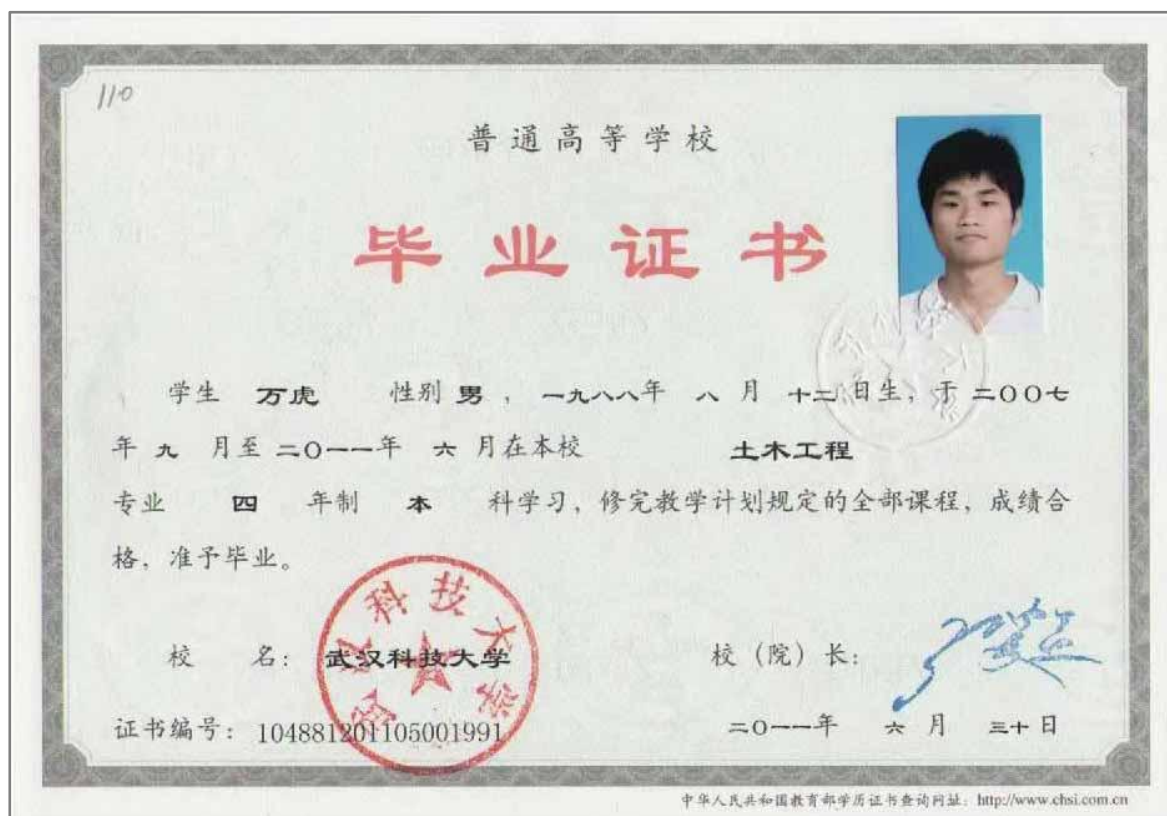 110
普通高等学校
毕业证书
学生 万虎 性别 男 ，一九八八年 八 月 十二 日生，于 二〇〇七
年 九 月至 二〇一一年 六 月在本校 土木工程
专业 四 年制 本 科学习，修完教学计划规定的全部课程，成绩合
格，准予毕业。
武汉科技大学
校 名：武汉科技大学 校（院）长：
证书编号：104881201105001991 二〇一一年 六 月 三十 日
中华人民共和国教育部学历证书查询网址：http://www.chsi.com.cn